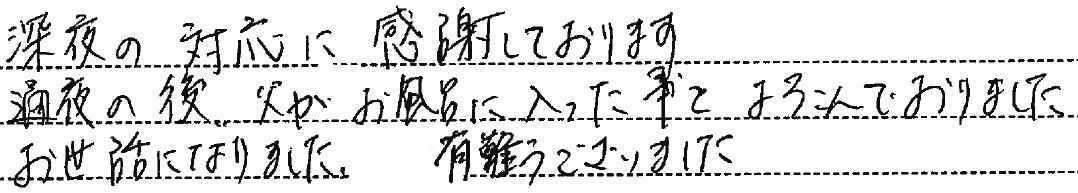 深夜の 対応に 感謝しております
通夜の後、父がお風呂に入った事を よろこんでおりました
お世話になりました。 有難うございました